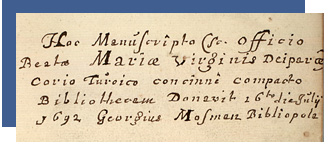 Hoc Manuscripto (sc. Officio
Beatæ Mariæ Virginis Deiparæ
Corio Turcico concinnè compacto
Bibliothecam Donavit 16to die Julij
1692 Georgius Mosman Bibliopola